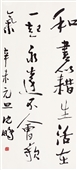 和書籍生活在
一起永遠不會嘆
氣 辛未元旦沈鵬